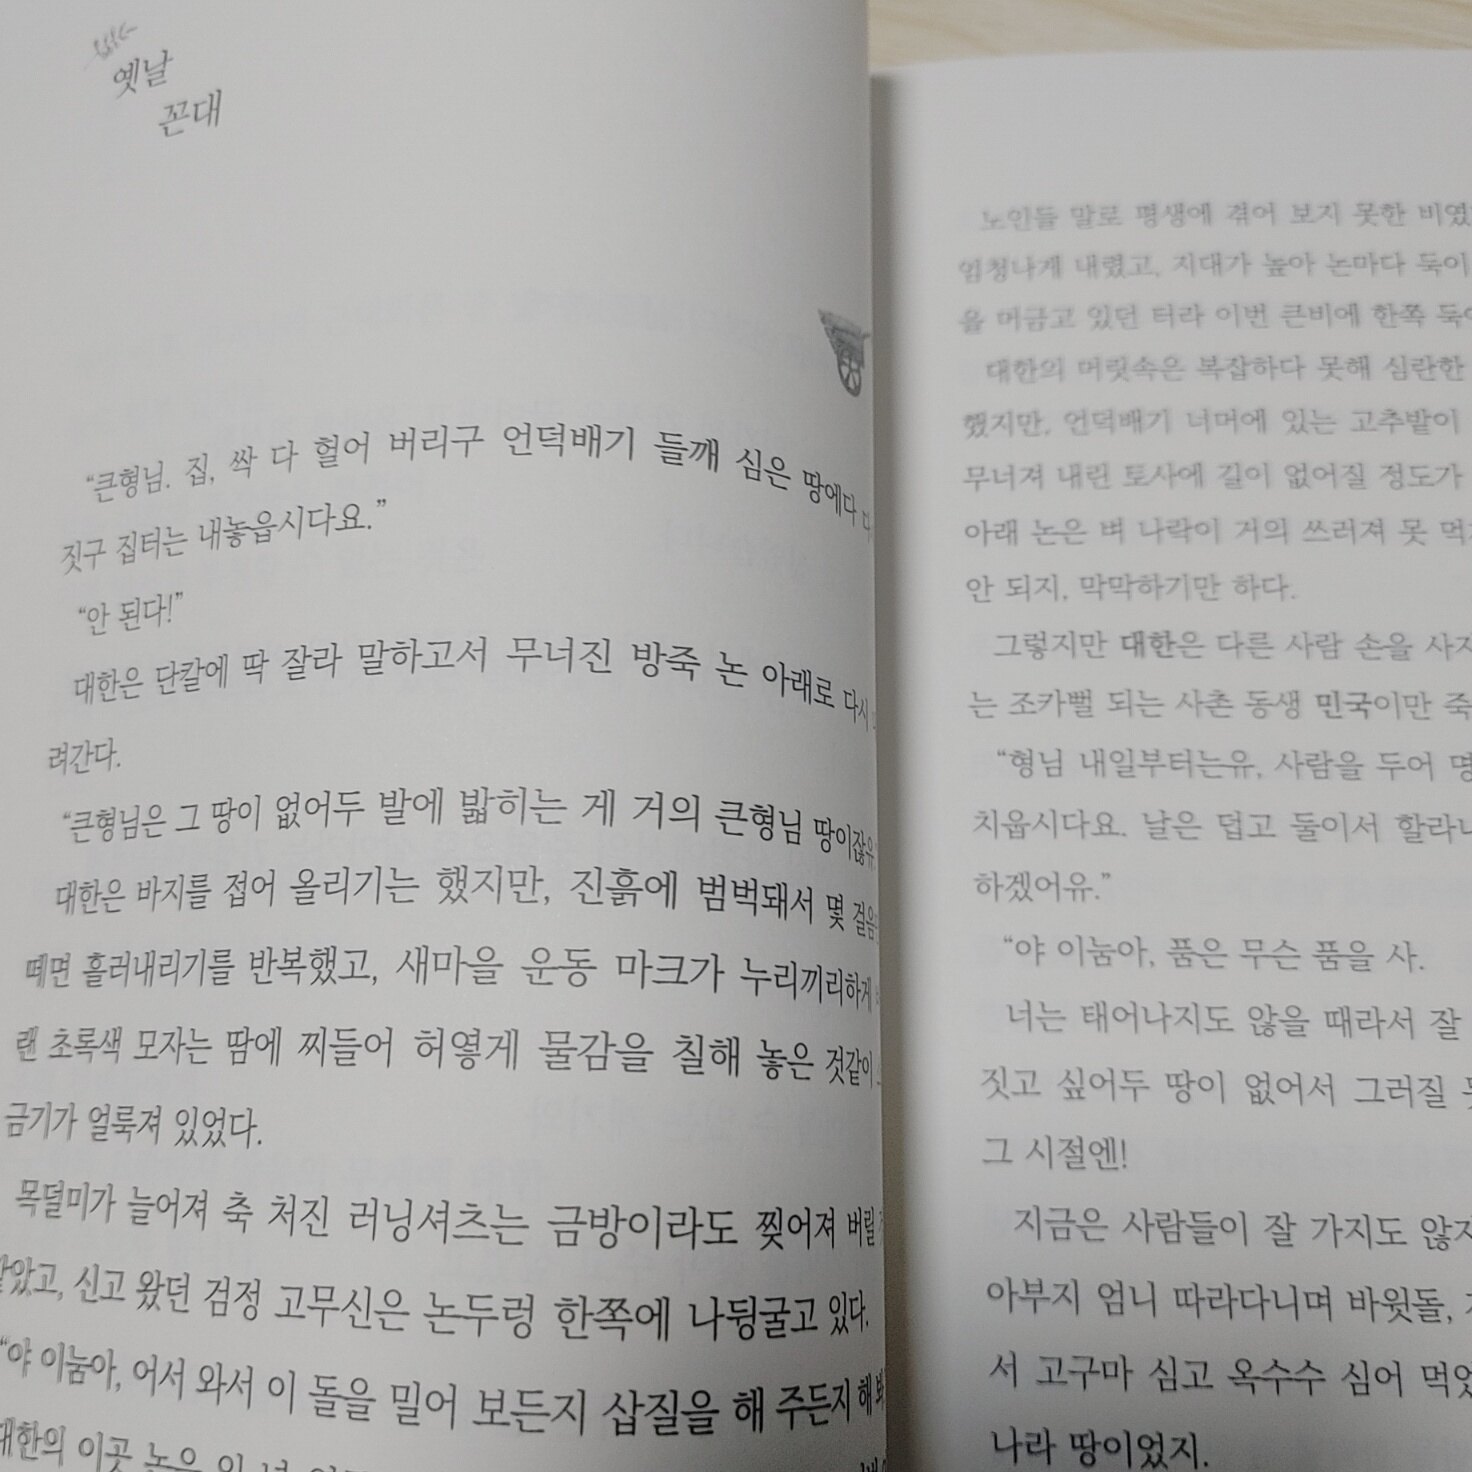 옛날
꼰대
“큰형님. 집, 싹 다 헐어 버리구 언덕배기 들깨 심은 땅에다
짓구 집터는 내놓읍시다요.”
“안 된다!”
대한은 단칼에 딱 잘라 말하고서 무너진 방죽 논 아래로 다시
려간다.
“큰형님은 그 땅이 없어두 발에 밟히는 게 거의 큰형님 땅이잖유.
대한은 바지를 접어 올리기는 했지만, 진흙에 범벅돼서 몇 걸음
떼면 흘러내리기를 반복했고, 새마을 운동 마크가 누리끼리하게
랜 초록색 모자는 땀에 찌들어 허옇게 물감을 칠해 놓은 것같이
금기가 얼룩져 있었다.
목덜미가 늘어져 축 처진 러닝셔츠는 금방이라도 찢어져 버릴
같았고, 신고 왔던 검정 고무신은 논두렁 한쪽에 나뒹굴고 있다.
“야 이눔아, 어서 와서 이 돌을 밀어 보든지 삽질을 해 주든지 해
대한의 이곳 논은
노인들 말로 평생에 겪어 보지 못한 비였
엄청나게 내렸고, 지대가 높아 논마다 둑이
을 머금고 있던 터라 이번 큰비에 한쪽 둑이
대한의 머릿속은 복잡하다 못해 심란한
했지만, 언덕배기 너머에 있는 고추밭이
무너져 내린 토사에 길이 없어질 정도가
아래 논은 벼 나락이 거의 쓰러져 못 먹
안 되지, 막막하기만 하다.
그렇지만 대한은 다른 사람 손을 사지
는 조카뻘 되는 사촌 동생 민국이만 죽
“형님 내일부터는유, 사람을 두어 명
치웁시다요. 날은 덥고 둘이서 할라니
하겠어유.”
“야 이눔아, 품은 무슨 품을 사.
너는 태어나지도 않을 때라서 잘
짓고 싶어두 땅이 없어서 그러질 못
그 시절엔!
지금은 사람들이 잘 가지도 않지
아부지 엄니 따라다니며 바윗돌,
서 고구마 심고 옥수수 심어 먹었
나라 땅이었지.